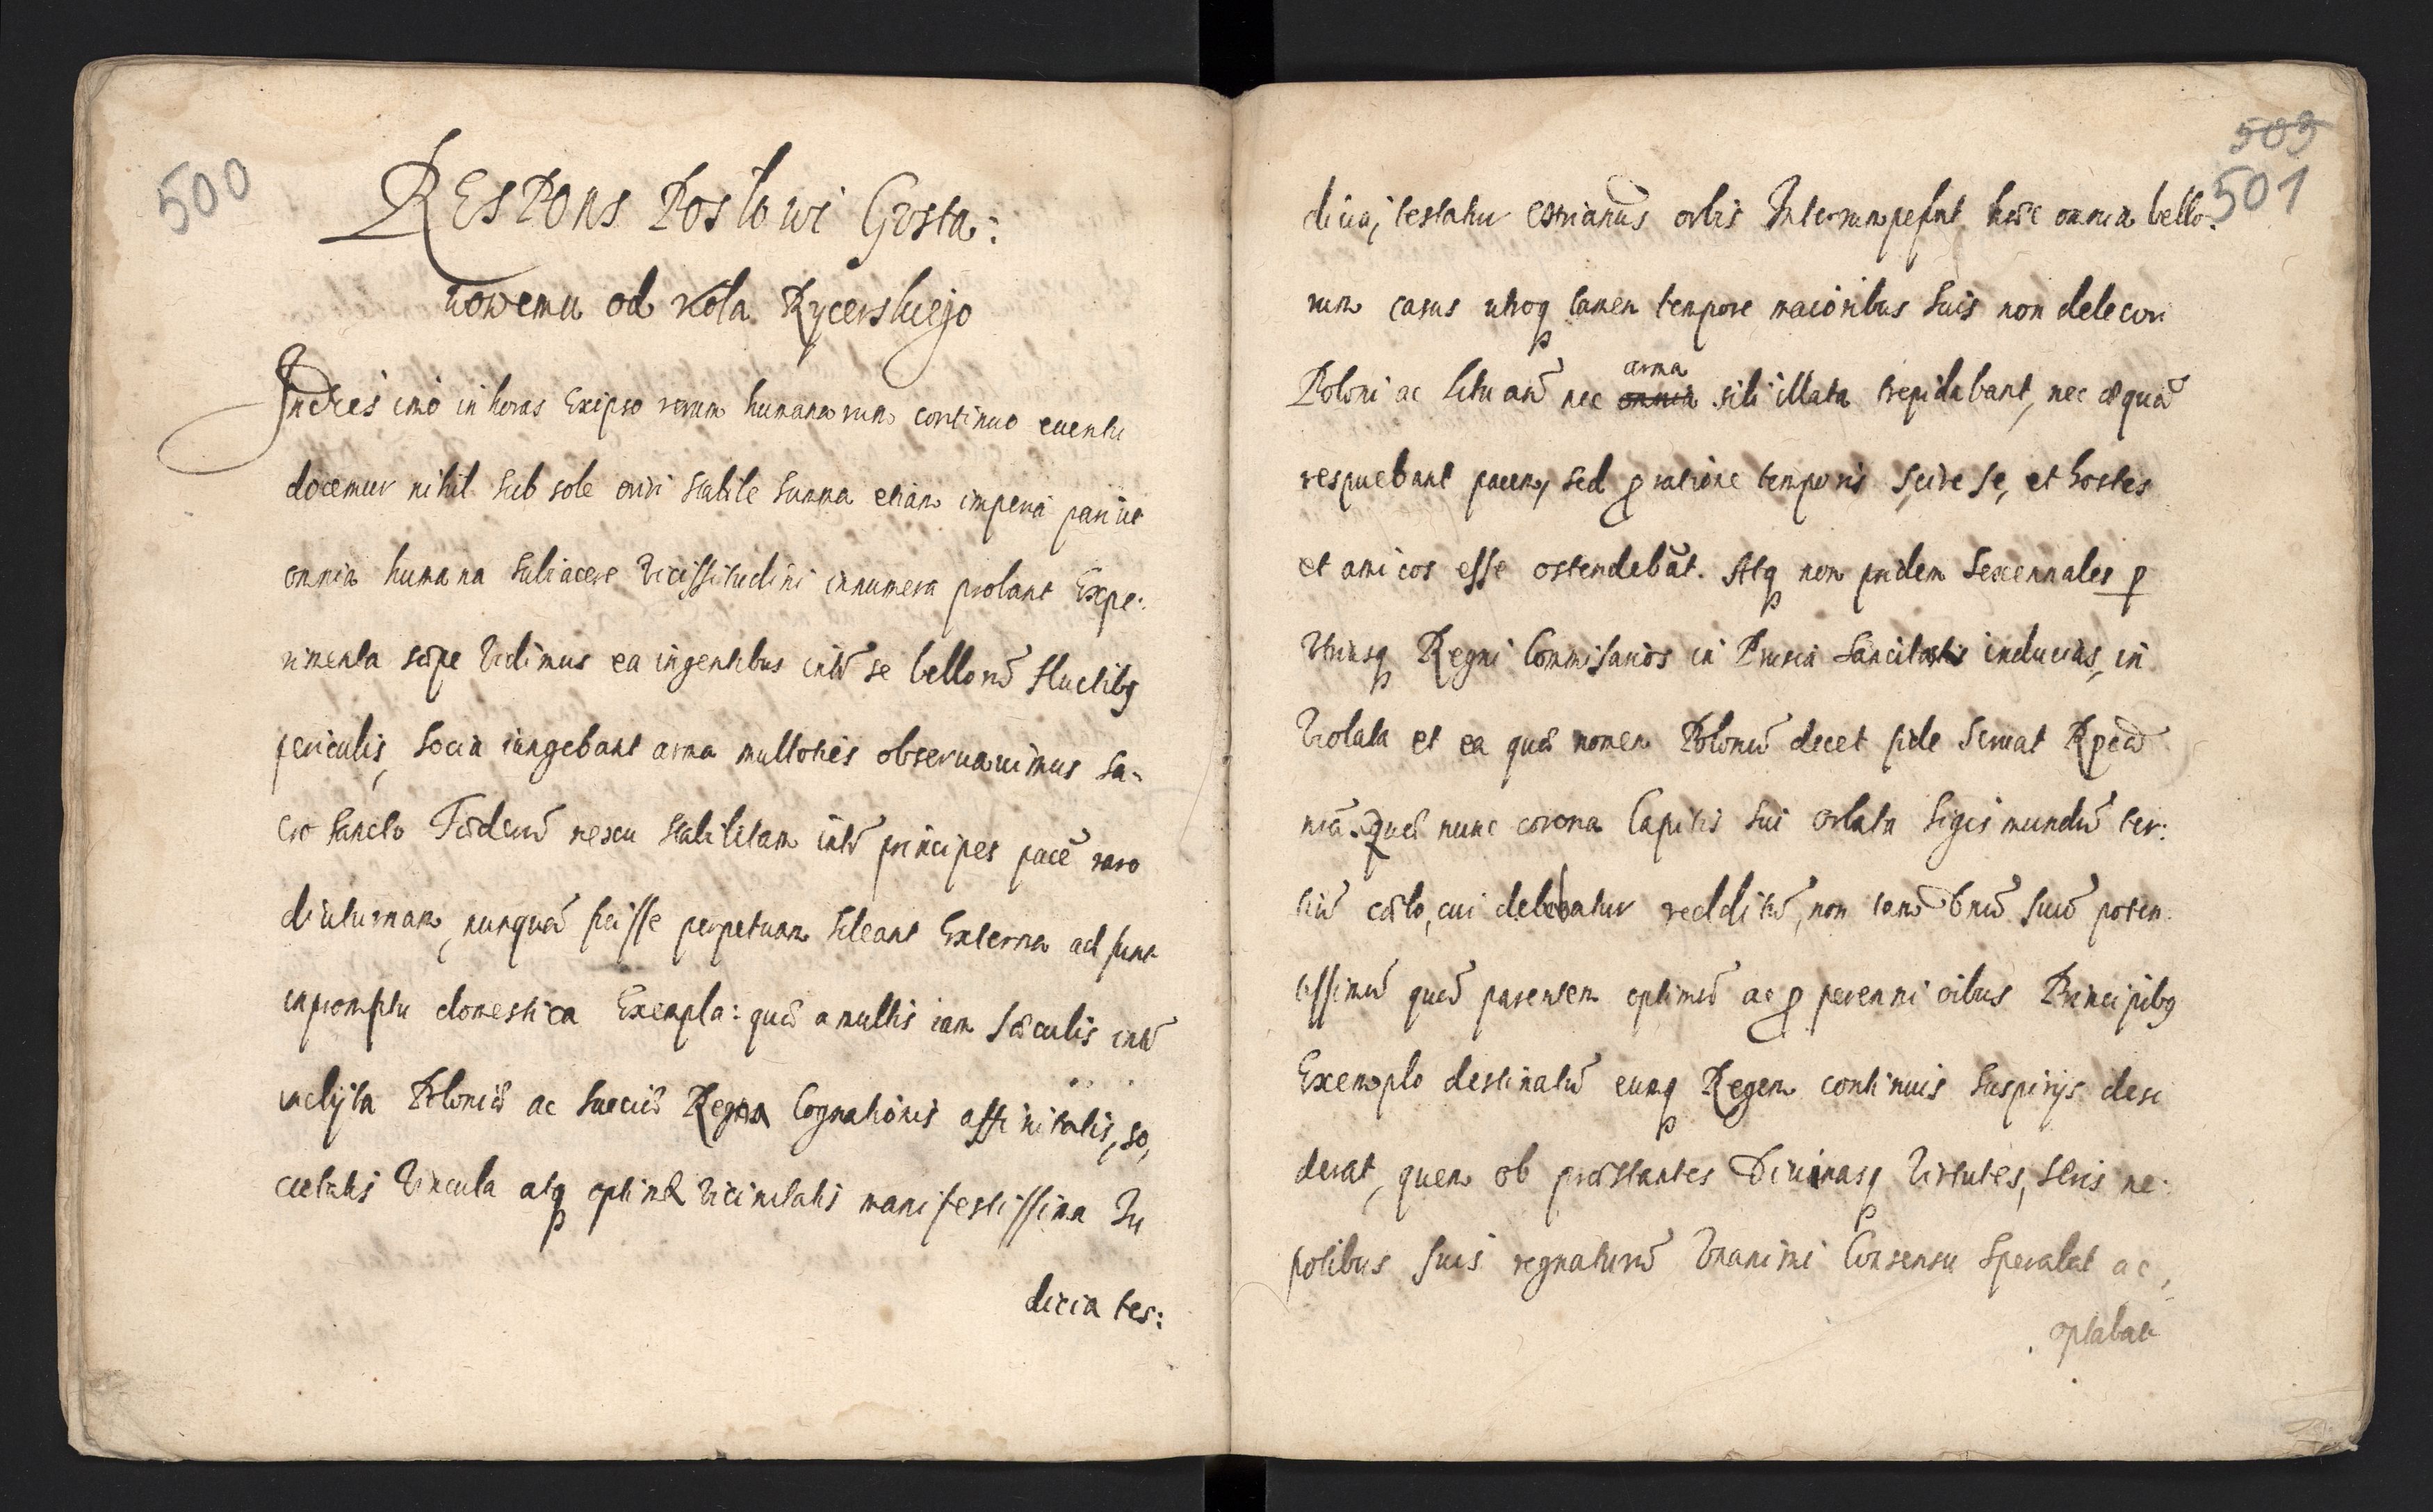 500
RESPONS Posłowi Gosta:
wowemu od Koła Rycerskiego
Indies imo in horas Ex ipso rerum humanarum continuo euentu
docemur nihil sub sole oriri stabile summa etiam imperia pari ut
omnia humana subiacere vicissitudini innumera probant Expe:
rimenta sæpe vidimus ea ingentibus intẽ se bellorũ fluctibꝯ
periculis, socia iungebant arma multoties obseruauimus sa-
cro sancto Fœderũ nexu stabilitam intẽ principes pacẽ raro
diuturnam, nunquã fuisse perpetuam sileant Externa ad sunt
in promptu domestica Exempla: quæ a multis iam sæculis intẽ
inclyta Poloniæ ac Sueciæ Regna Cognationis affinitatis, so,
cietatis vincula atq optimæ vicinitatis manifestissima In
dicia tes:
509
501
dicia, testatur orbis Interrumpebat hæc omnia bello:
rum casus utroq tamen tempore maioribus suis non dedecori
Poloni ac Lituani nec omnia arma sibi illata trepidabant, nec æquã
respuebant pacem, sed ꝓ ratione temporis scire se, et hostes
et amicos esse ostendebãt. Atq non pridem sexennales ꝑ
vtriusq Regni Commisarios in Prusia sancitas inducias, in
violata et ea quæ nomen Polonũ decet fide seruat Rpca
nra. quæ nunc corona Capitis sui orbata Sigismundũ ter:
tiũ cælo, cui debebatur redditũ, non tam Dnũ suũ poten:
tissimũ quã parentem optimũ ac ꝓ perenni oibus Principibꝯ
Exemplo destinatũ eumq Regem continuis suspirijs desi
derat, quem ob præstantes Diuinasq virtutes, seris ne:
potibus suis regnaturũ vnanimi Consensu sperabat ac,
optabat